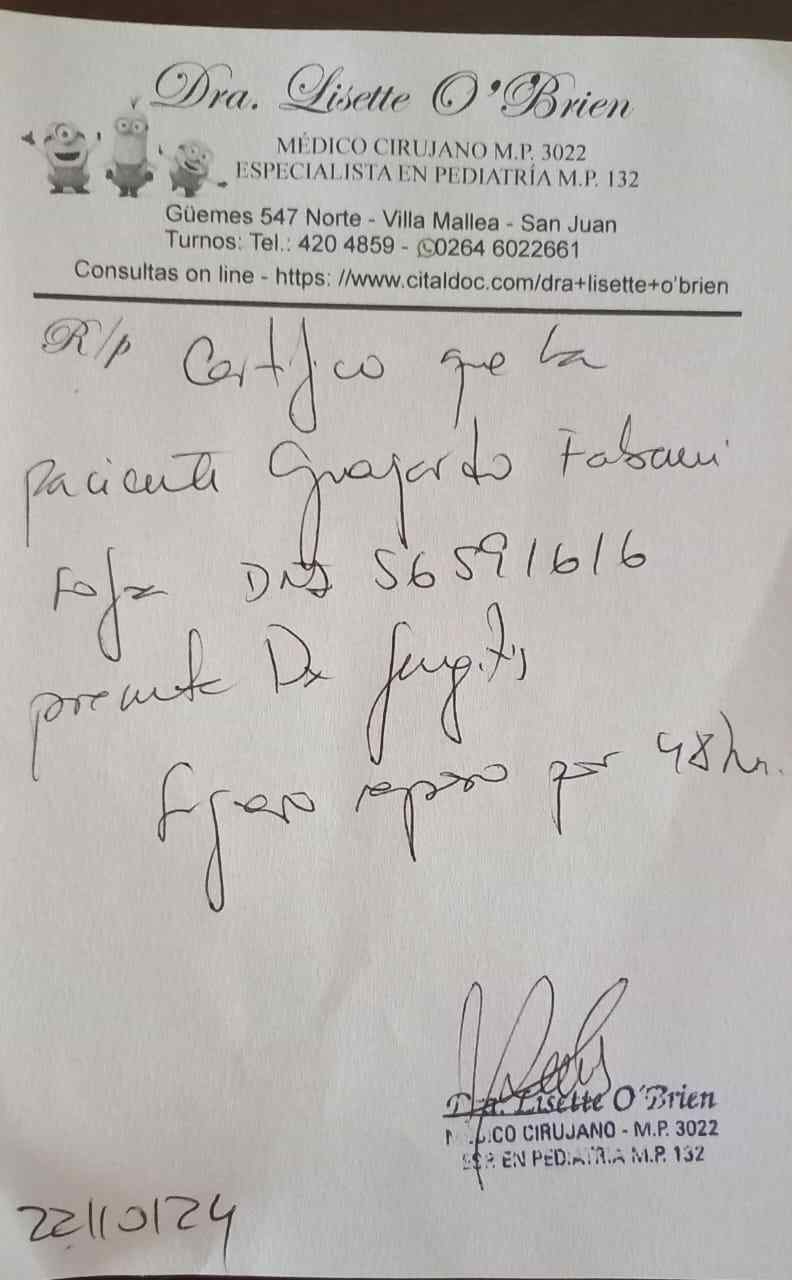 Dra. Lisette O'Brien
MÉDICO CIRUJANO M.P. 3022
ESPECIALISTA EN PEDIATRÍA M.P. 132
Güemes 547 Norte - Villa Mallea - San Juan
Turnos: Tel.: 420 4859 - 0264 6022661
Consultas on line - https: //www.citaldoc.com/dra+lisette+o'brien
R/p Certifico que la
paciente Guajardo
DNI 56591616
presenta Dx
reposo por 48 hr.
Dra. Lisette O'Brien
MÉDICO CIRUJANO - M.P. 3022
ESP. EN PEDIATRIA M.P. 132
22/10/24